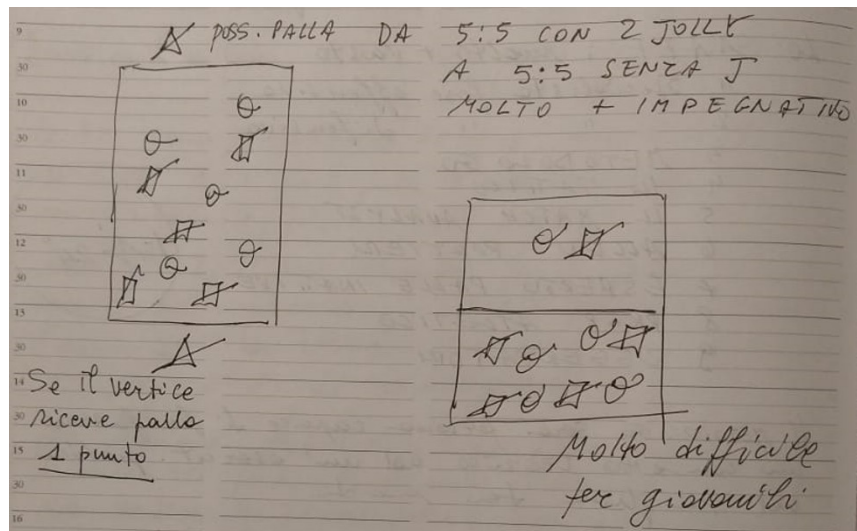 9
30
10
30
11
30
12
30
13
30
14
30
15
30
16
POSS. PALLA DA 5:5 CON 2 JOLLY
A 5:5 SENZA J
MOLTO + IMPEGNATIVO
Se il vertice
riceve palla
1 punto
Molto difficile
per giovanili